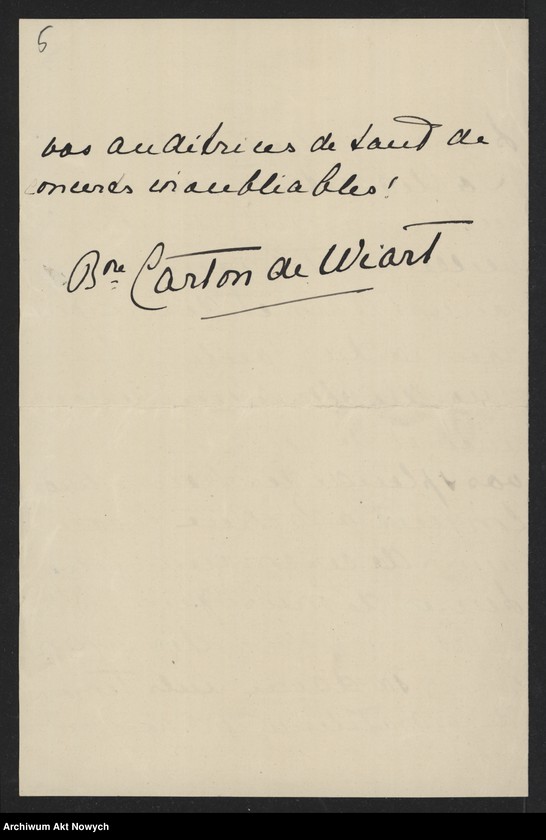 5
vos auditrices de tant de
concerts inoubliables!
Bne Carton de Wiart
Archiwum Akt Nowych